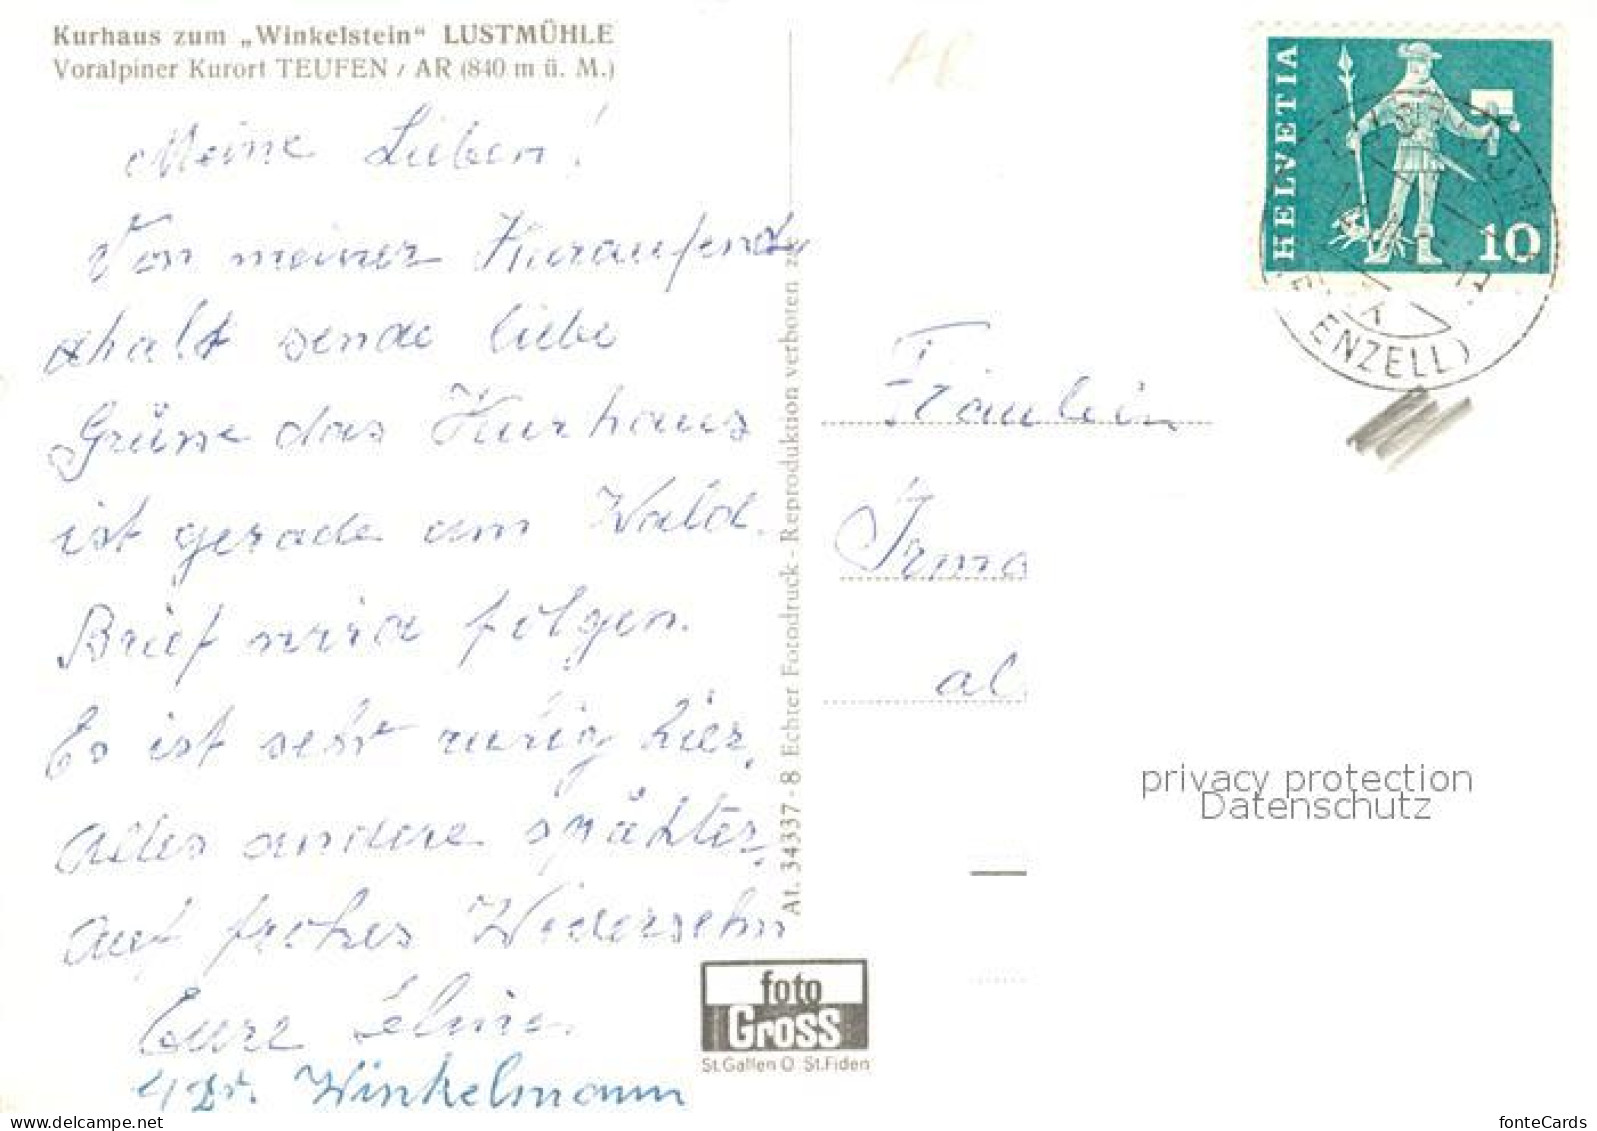 Kurhaus zum „Winkelstein“ LUSTMÜHLE
Voralpiner Kurort TEUFEN / AR (840 m ü. M.)
AR
Meine Lieben!
Von meiner
sende liebe
Grüsse das Kurhaus
ist gerade am Wald.
Brief wird folgen.
Es ist sehr ruhig hier,
alles andere spähter,
auf frohes Widersehn
Eure
Winkelmann
At. 34337 - 8 Echter Fotodruck - Reproduktion verboten
foto
Gross
St.Gallen O St.Fiden
HELVETIA
10
ENZELL)
Fräulein
Irma
al
privacy protection
Datenschutz
fonteCards